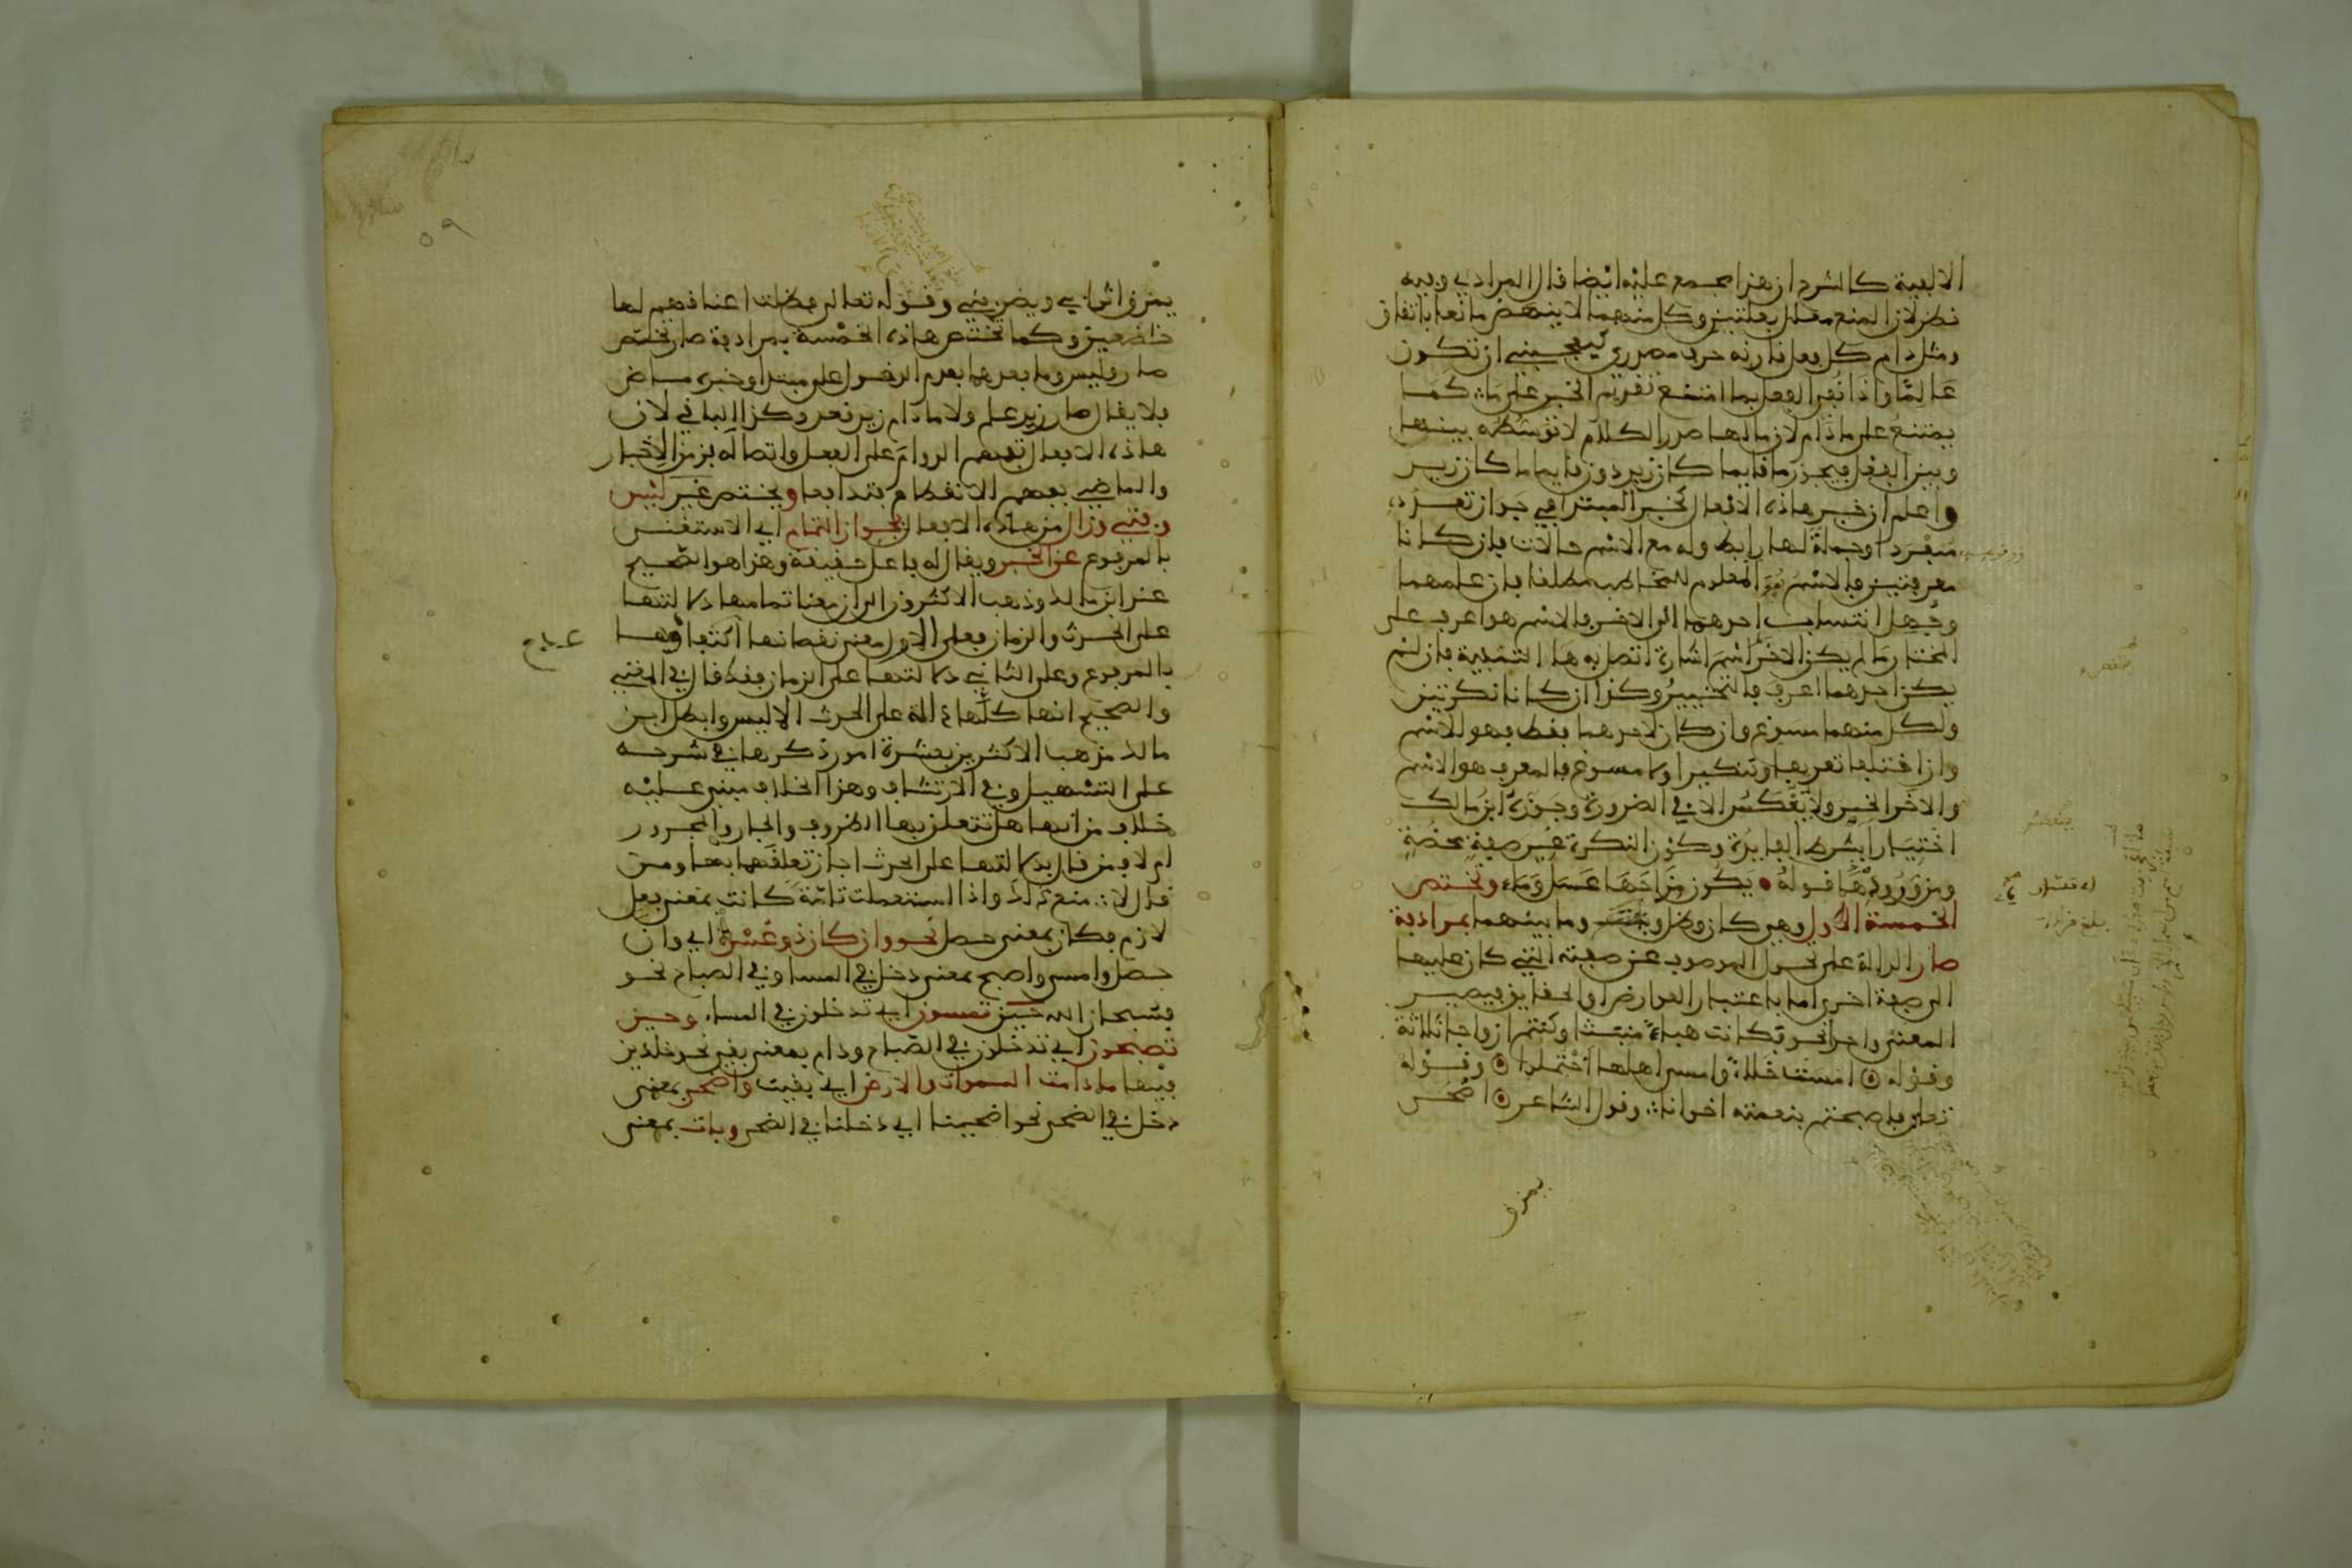 الالفية كالشرح ان هذا مجمع عليه ايضا قال المرادي وفيه
نظر لان المنع معلل بعلتين وكل منهما لا ينهض مانعا باتفاق
ومثل دام كل فعل قارنه حرف مصدري كيعجبني ان تكون
عالما واذا نفي الفعل بما امتنع تقديم الخبر على ما كما
يمتنع على ما دام لان ما لها صدر الكلام لا توسطه بينها
وبين الفعل فيجوز ما قايما كان زيد دون قايما ما كان زيد
واعلم ان خبر هاذه الافعال كخبر المبتدا في جواز تعدده
مفردا وجملة لها رابط وله مع الاسم حالات فان كانا
معرفتين فالاسم هو المعلوم للمخاطب مطلقا فان علمهما
وجهل انتساب احدهما الى الاخر فالاسم هو اعرف على
المختار ما لم يكن الاخر اسم اشارة اتصل به ها التنبيه فان لم
يكن احدهما اعرف فالتخيير وكذا ان كانا نكرتين
ولكل منهما مسوغ وان كان لاحدهما فقط فهو الاسم
وان اختلفا تعريفا وتنكيرا ولا مسوغ فالمعرف هو الاسم
والاخر الخبر ولا ينعكس الا في الضرورة وجوزه ابن مالك
اختيارا بشرط الفايدة وكون النكرة غير صفة محضة
ومن وروده قوله يكون مزاجها عسل وماء وتختص
الخمسة الاول وهي كان وظل وما بينهما بمرادفة
صار الدالة على تحول الموصوف عن صفته التي كان عليها
الى صفة اخرى اما باعتبار العوارض او الحقايق فيصير
المعنى واحدا نحو فكانت هباء منبثا وكنتم ازواجا ثلاثة
وقوله امست خلاء وامسى اهلها احتملوا وقوله
تعلى فاصبحتم بنعمته اخوانا وقول الشاعر اضحى
يمزق
يمزق اثوابي ويضربني وقوله تعالى فظلت اعناقهم لها
خاضعين وكما تختص هاذه الخمسة بمرادفة صار تختص
صار وليس وما بعدهما بعدم الدخول على مبتدا وخبره ماض
فلا يقال صار زيد علم ولا ما دام زيد قعد وكذا الباقي لان
هاذه الافعال تفهم الدوام على الفعل واتصاله بزمن الاخبار
والماضي يفهم الانقطاع فتدافعا ويختص غير ليس
وفتئ وزال من هاذه الافعال بجواز التمام اي الاستغناء
بالمرفوع عن الخبر ويقال له فاعل حقيقة وهذا هو الصحيح
عند ابن مالك وذهب الاكثرون الى ان معنا تمامها دلالتها
على الحدث والزمان فعلى الاول معنى نقصانها
بالمرفوع وعلى الثاني دلالتها على الزمان فقط قال في المغني
والصحيح انها كلها دالة على الحدث الا ليس وابطل ابن
مالك مذهب الاكثرين بعشرة امور ذكرها في شرحه
على التسهيل وفي الارتشاف وهذا الخلاف مبني عليه
خلاف من انها هل تتعلق بها الظروف والجار والمجرور
ام لا فمن قال بدلالتها على الحدث اجاز تعلقها بها ومن
قال لا منع ذلك واذا استعملت تامة كانت بمعنى فعل
لازم فكان بمعنى حصل نحو وان كان ذو عسرة اي وان
حصل وامسى واصبح بمعنى دخل في المساء وفي الصباح نحو
فسبحان الله حين تمسون اي تدخلون في المساء وحين
تصبحون اي تدخلون في الصباح ودام بمعنى بقي نحو خالدين
فيها ما دامت السموات والارض اي بقيت واضحى بمعنى
دخل في الضحى نحو اضحينا اي دخلنا في الضحى وبات بمعنى
٥٩